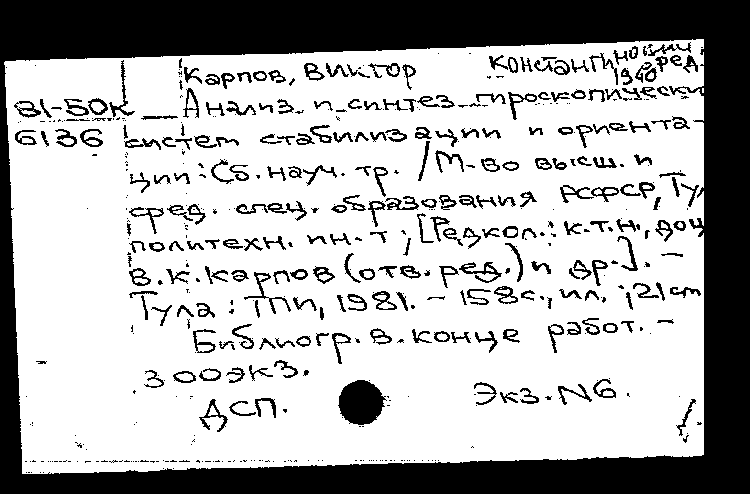 Карпов, Виктор Константинович, ред.
1940
81-50к Анализ и синтез гироскопически
6136 систем стабилизации и ориента-
ции : Сб. науч. тр. / М-во высш. и
сред. спец. образования РСФСР, Ту
политехн. ин-т ; [Редкол.: к.т.н., доц
В.К.Карпов (отв. ред.) и др.]. –
Тула : ТПИ, 1981. – 158с., ил. ; 21 cm
Библиогр. в конце работ. –
300экз.
ДСП. Экз. N6.